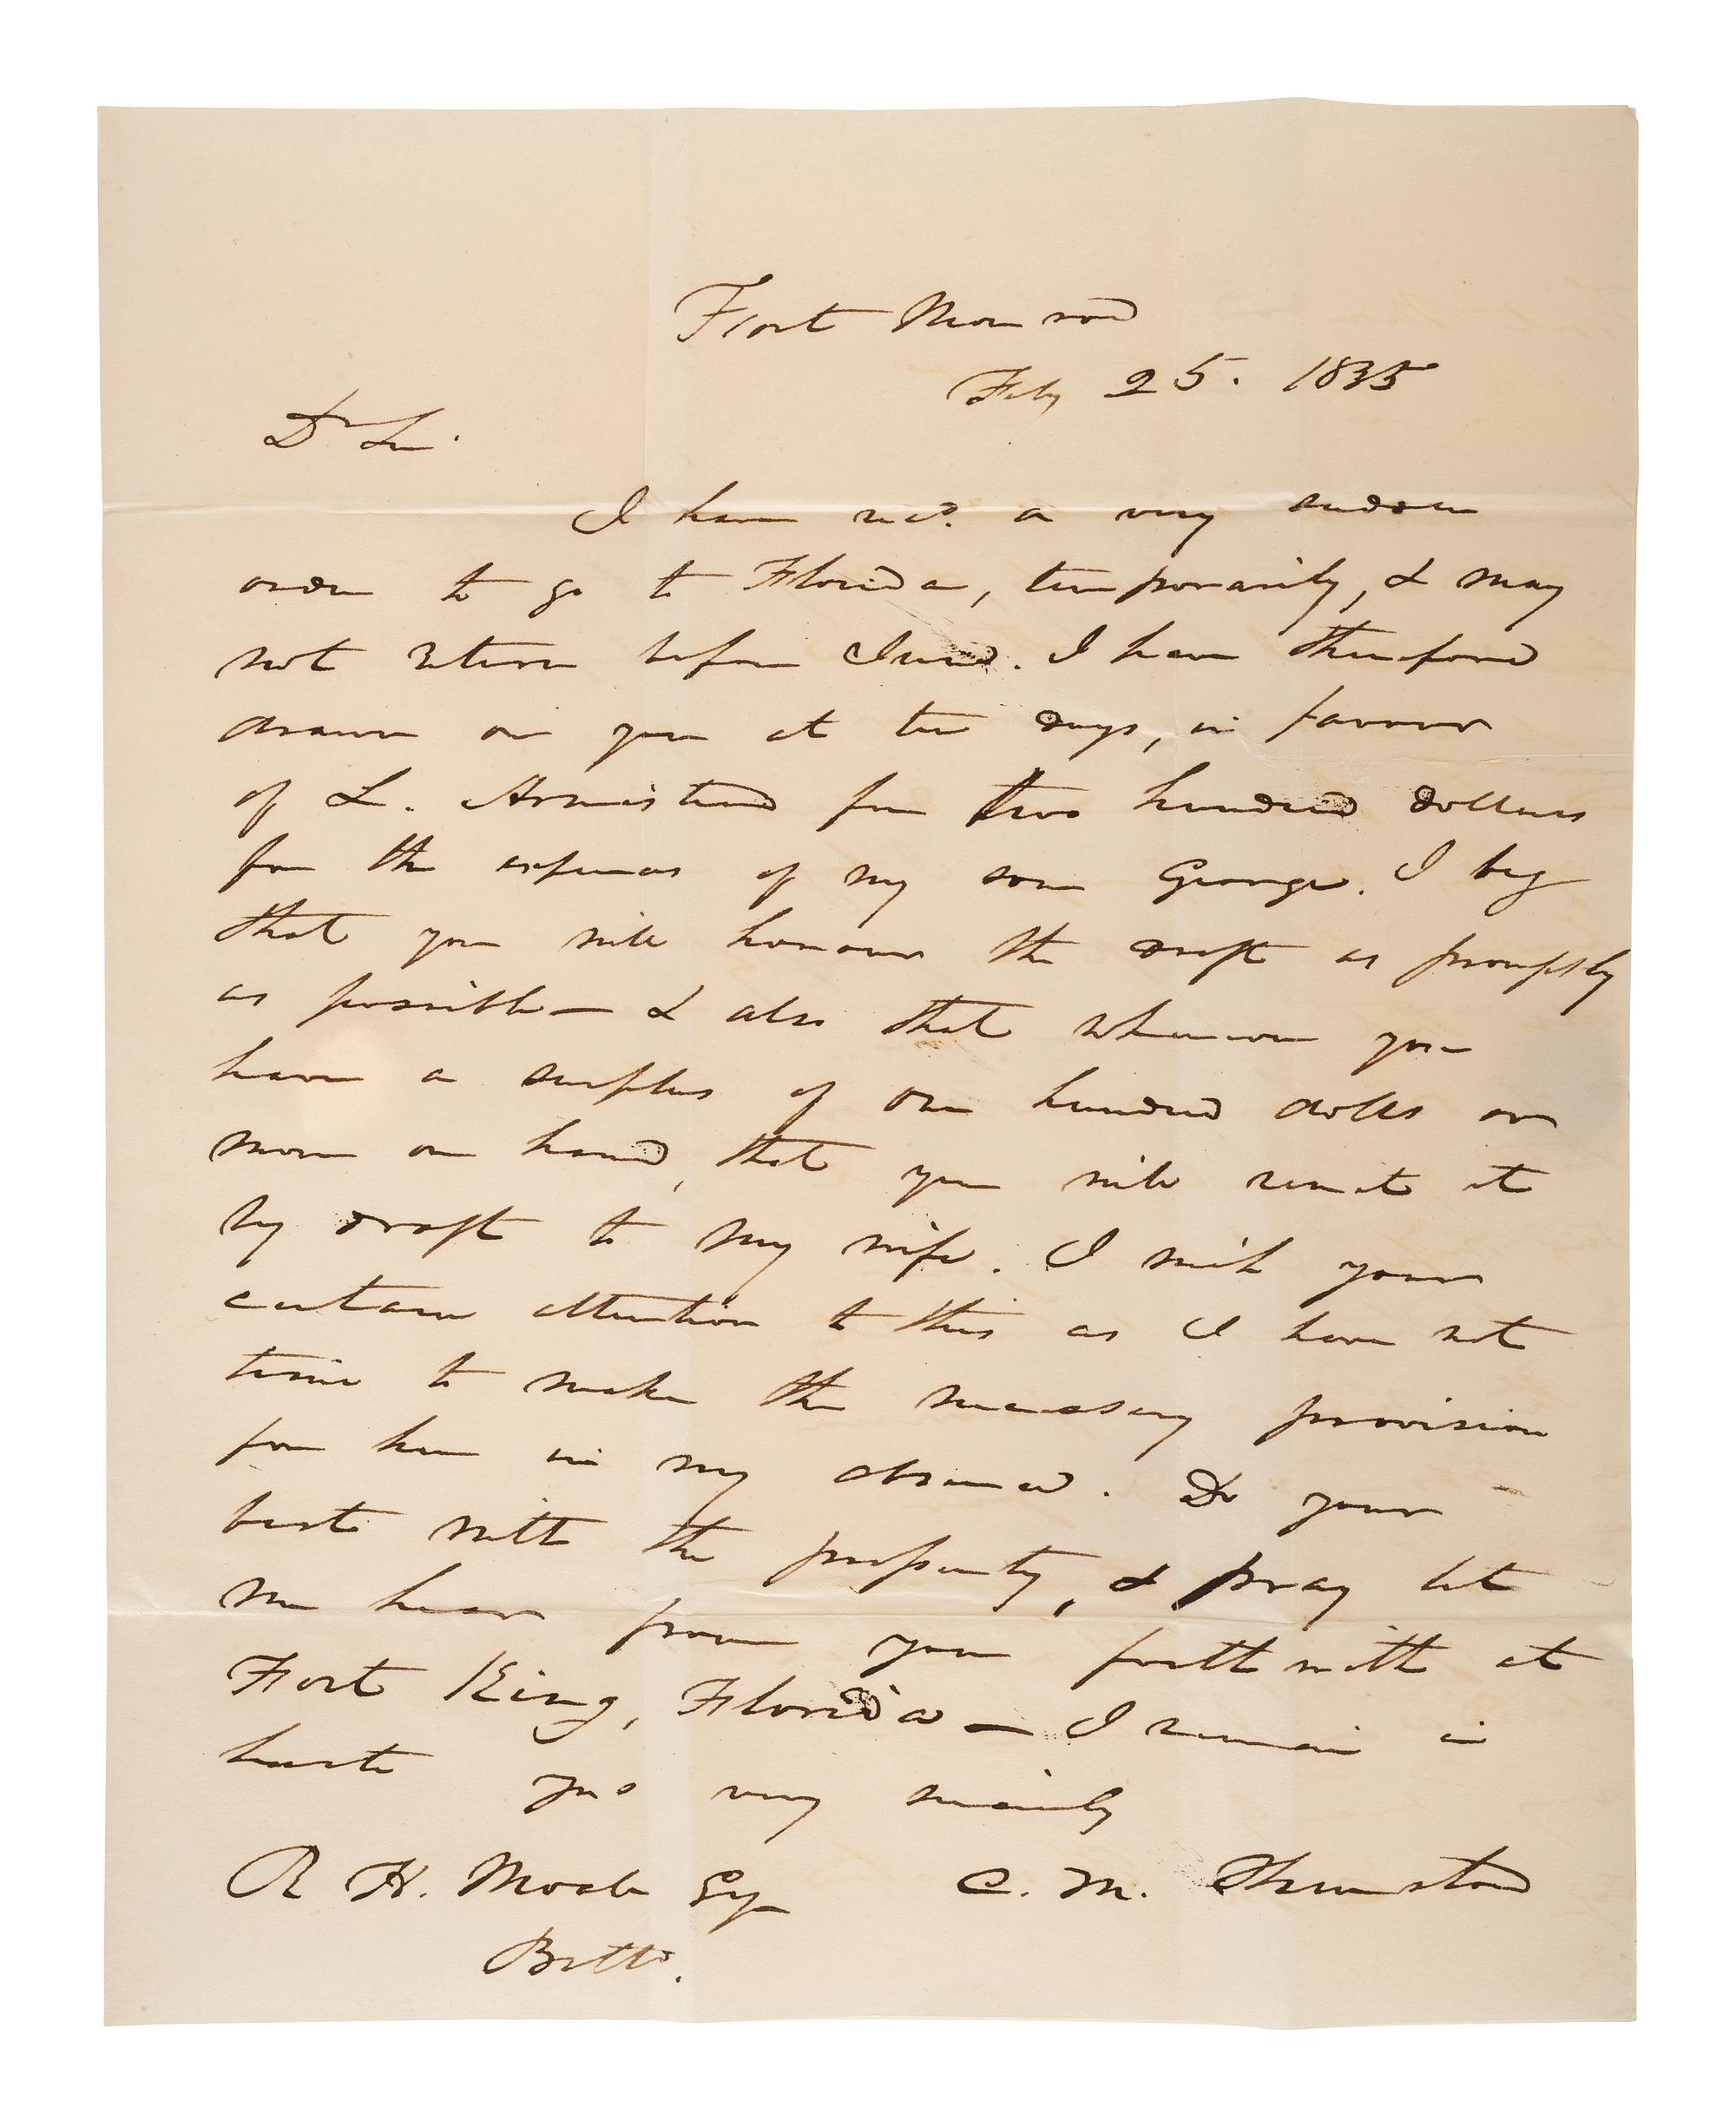 Fort Monroe
Feby 25. 1835
Dr Sir.
I have recd. a very sudden
order to go to Florida, temporarily, & may
not return before June. I have therefore
drawn on you at ten days, in favour
of L. Armistead for two hundred dollars
for the expenses of my son George. I beg
that you will honour the draft as promptly
as possible — & also that whenever you
have a surplus of one hundred dolls or
more on hand, that you will remit it
by draft to my wife. I wish your
certain attention to this as I have not
time to make the necessary provision
for her in my absence. Do your
best with the property, & pray let
me hear from you forthwith at
Fort King, Florida — I remain in
haste yrs very sincerely
R H. Moale Esq C. M. Thruston
Balto.